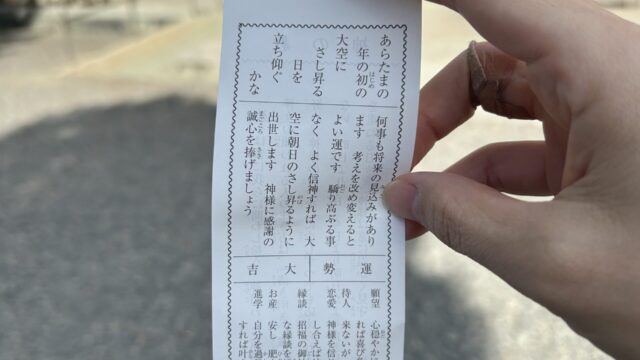 あらたまの
年の初の
はじめ
大空に
さし昇る
日を
立ち仰ぐ
かな
何事も将来の見込みがあり
ます 考えを改め変えると
よい運です 驕り高ぶる事
おご
なく よく信神すれば 大
空に朝日のさし昇るように
のぼ
出世します 神様に感謝の
誠心を捧げましょう
まごころ
ささ
運勢
大吉
願望 心穏やか
れば喜び
待人 来ないが
恋愛 神様を信
し合えば
縁談 招福の御
な縁談を
お産 安し 肥
進学 自分を過
すれば叶